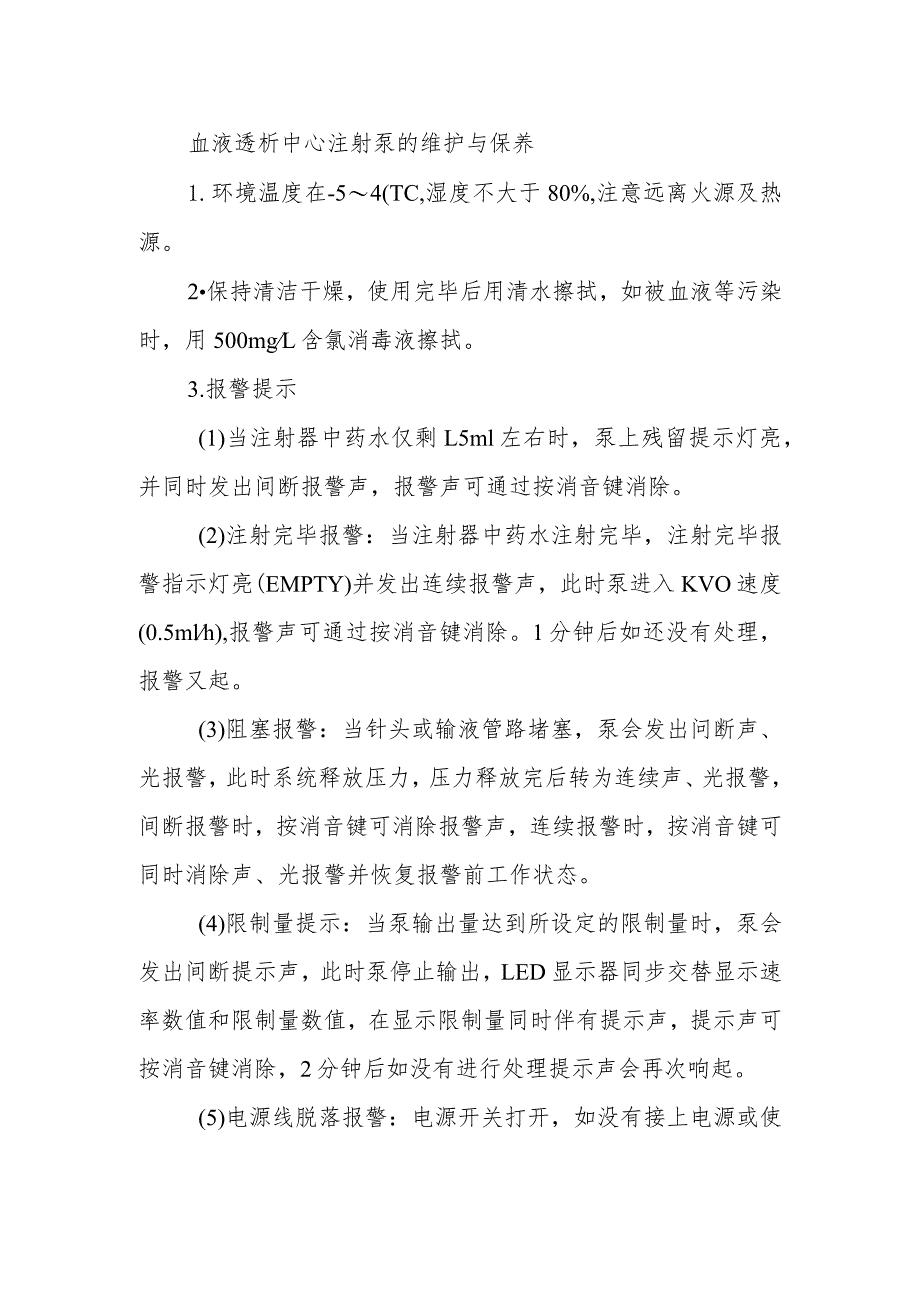 血液透析中心注射泵的维护与保养
1. 环境温度在-5～4(TC,湿度不大于 80%,注意远离火源及热
源。
2•保持清洁干燥，使用完毕后用清水擦拭，如被血液等污染
时，用 500mg∕L 含氯消毒液擦拭。
3.报警提示
(1)当注射器中药水仅剩 L5ml 左右时，泵上残留提示灯亮，
并同时发出间断报警声，报警声可通过按消音键消除。
(2)注射完毕报警：当注射器中药水注射完毕，注射完毕报
警指示灯亮(EMPTY)并发出连续报警声，此时泵进入 KVO 速度
(0.5ml∕h),报警声可通过按消音键消除。1 分钟后如还没有处理，
报警又起。
(3)阻塞报警：当针头或输液管路堵塞，泵会发出问断声、
光报警，此时系统释放压力，压力释放完后转为连续声、光报警，
间断报警时，按消音键可消除报警声，连续报警时，按消音键可
同时消除声、光报警并恢复报警前工作状态。
(4)限制量提示：当泵输出量达到所设定的限制量时，泵会
发出间断提示声，此时泵停止输出，LED 显示器同步交替显示速
率数值和限制量数值，在显示限制量同时伴有提示声，提示声可
按消音键消除，2 分钟后如没有进行处理提示声会再次响起。
(5)电源线脱落报警：电源开关打开，如没有接上电源或使